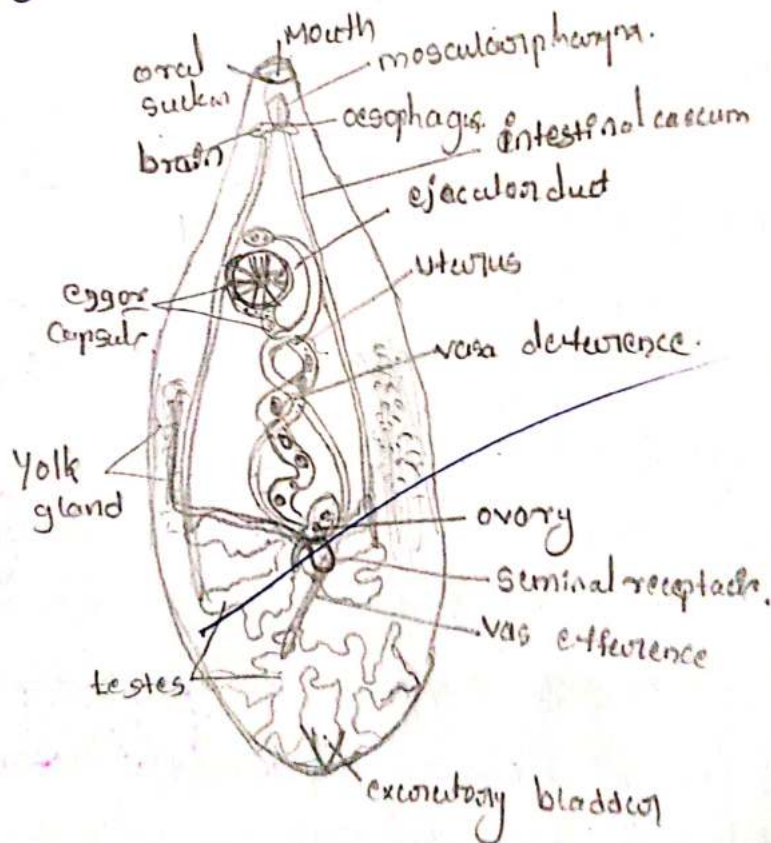 Mouth
oral
sucker
moscular pharynx.
oesophagus
brain
intestinal caecum
ejacular duct
uterus
eggor
capsule
vasa deference.
Yolk
gland
ovory
seminal receptacle.
vas efference
testes
excretory bladder